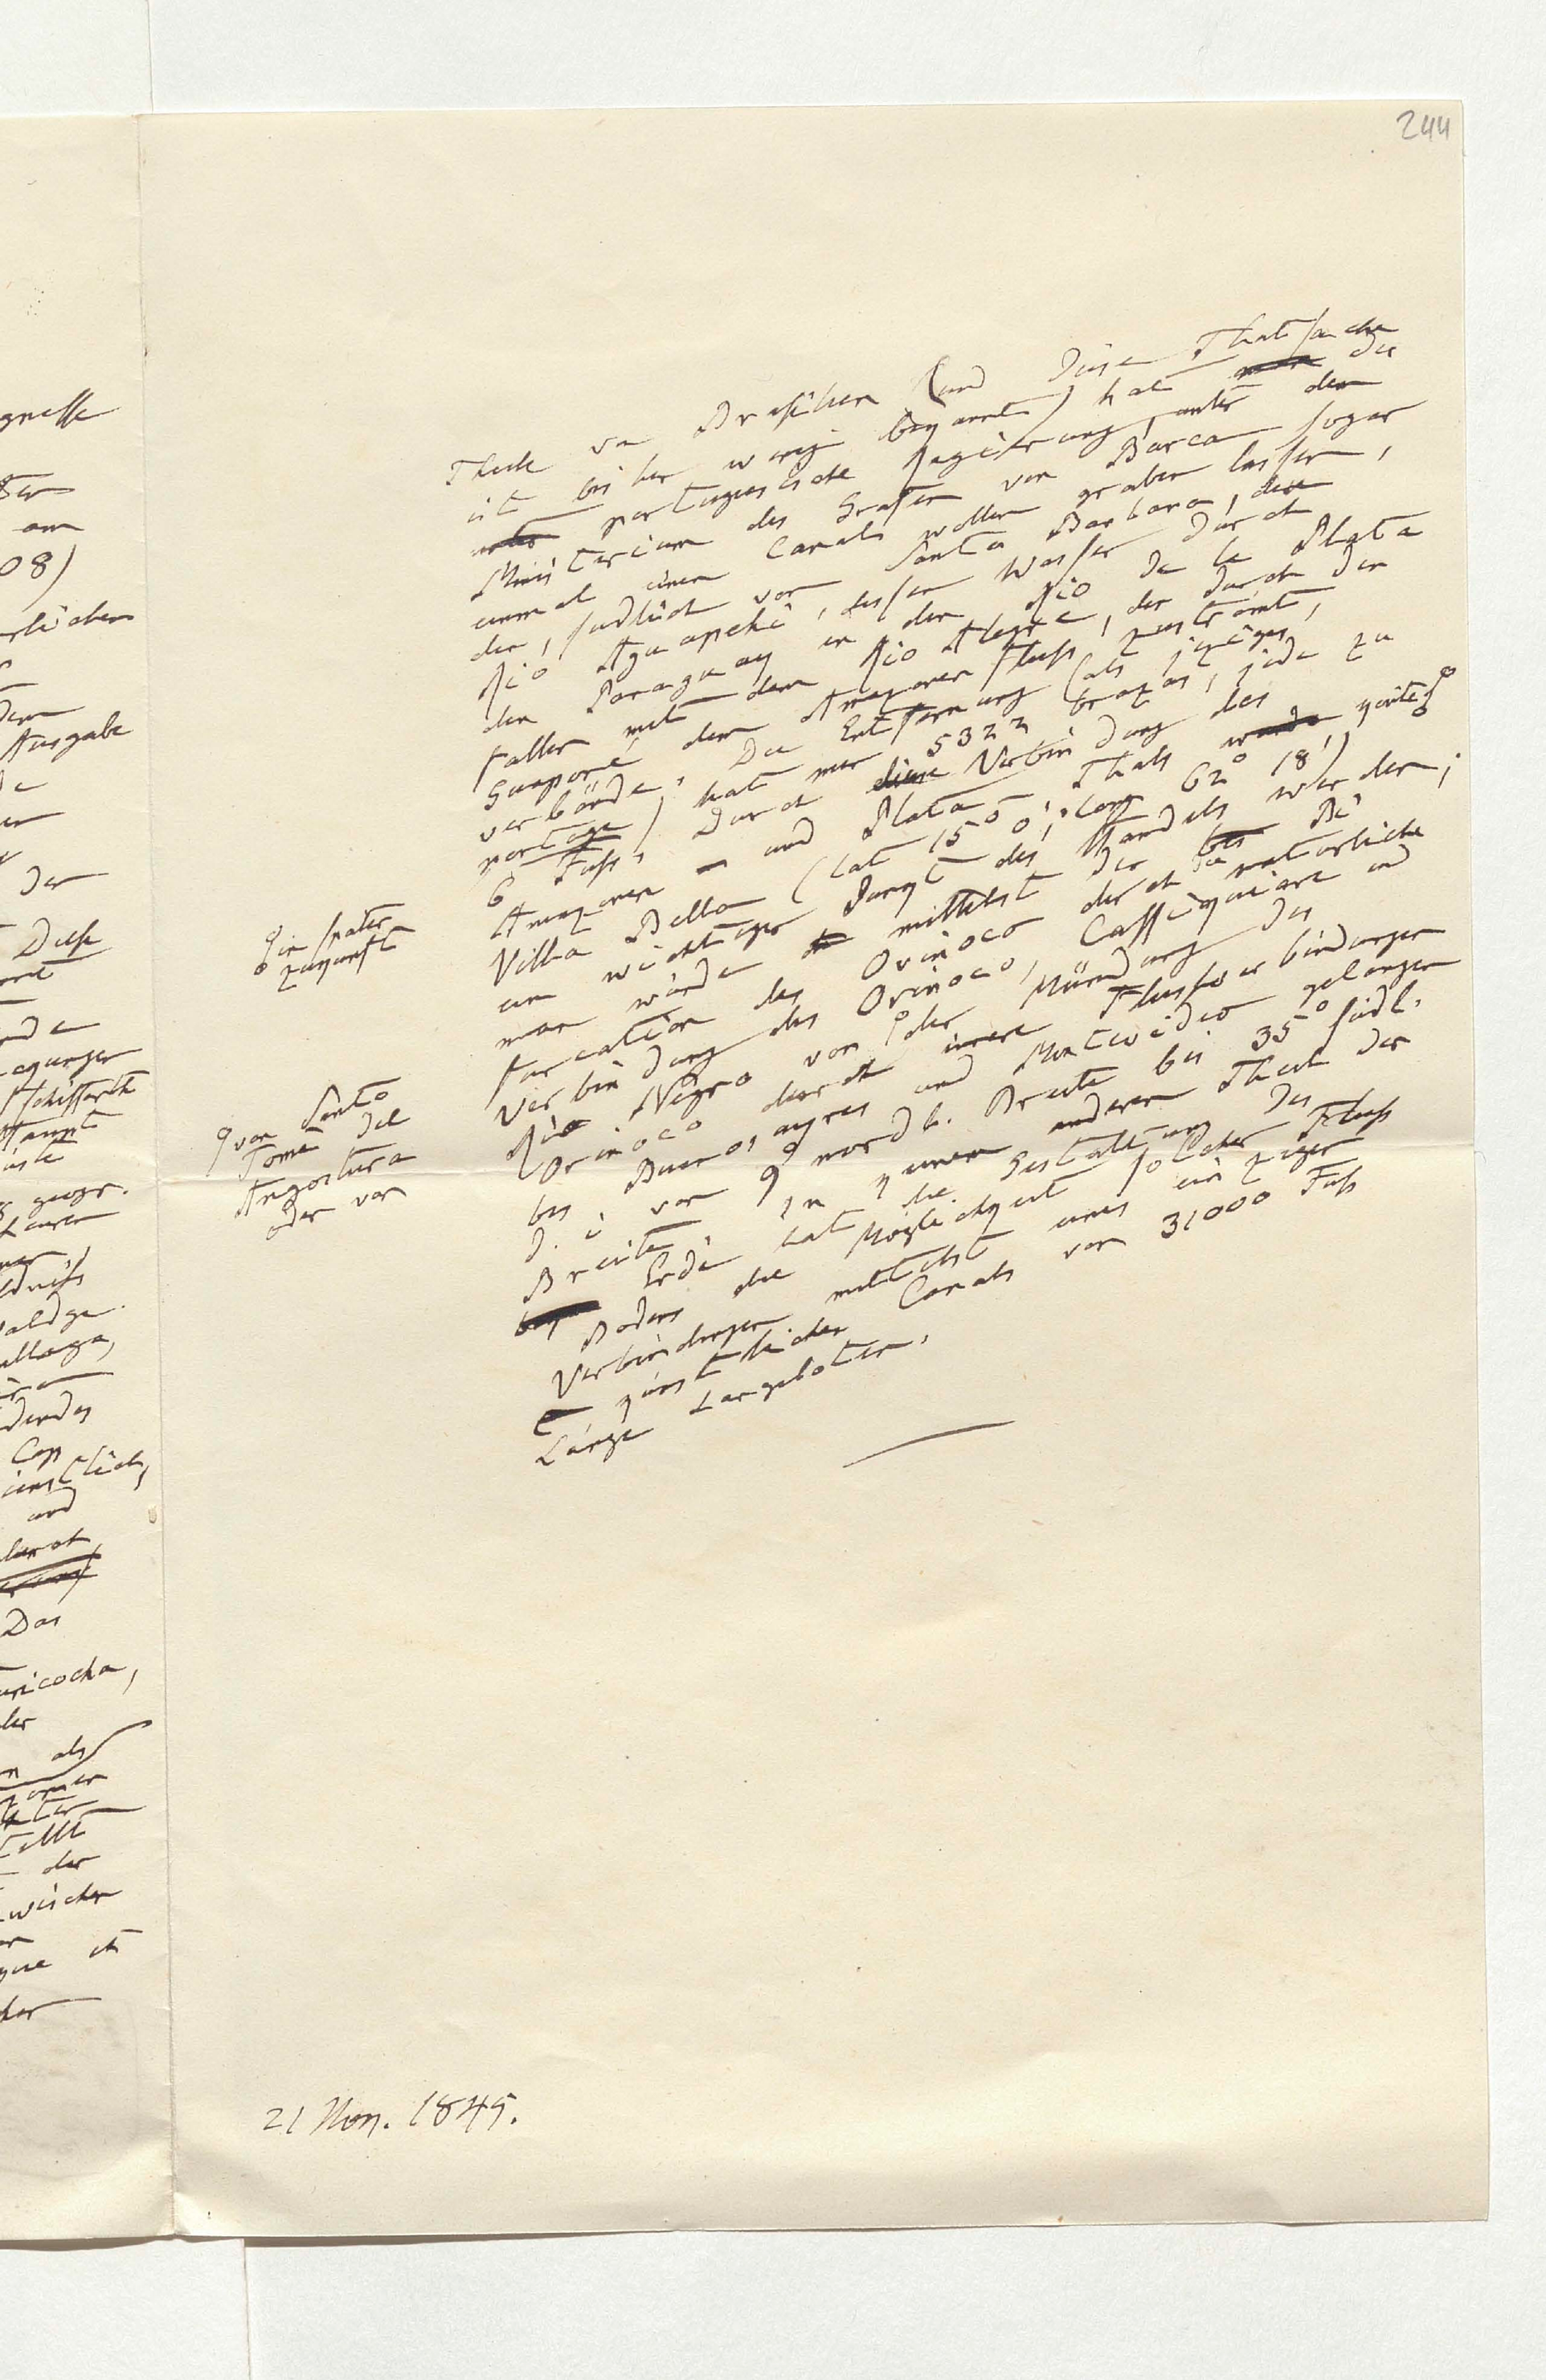 244
Theile von Brasilien (und diese Thatsache
ist bisher wenig bekannt) hat die
portugiesische Regierung, unter dem
Ministerium des Grafen von Barca sogar
einmal einen Canal wollen graben lassen,
der, südlich von Santa Barbara, den
Rio Aguapehi, dessen Wasser durch
den Paraguay in den Rio de la Plata
fallen mit dem Rio Alegre, der durch den
Guaporé dem Amazonen Fluss zuströmt,
verbände. Die Entfernung (als jeziges
portage) hat nur 5322 brazas, jede zu
6 Fuss. Durch diese Verbindung des
Amazonen- und Plata Thals könte
Villa Bella (lat 15° 0', long 62° 18')
ein wichtiger Punkt des Handels werden;
man würde mittelst der Bi-
furcation des Orinoco durch die natürliche
Verbindung des Orinoco, Cassiquiare und
Rio Negro von der Mündung des
Orinoco durch innere Flussverbindungen
bis Buenos ayres und Montevideo gelangen
d. i von 9° nordl. Breite bis 35° südl.
Breite. In keinem anderen Theil der
Erde hat die Gestaltung des
Bodens die Möglichkeit solcher Fluss
Verbindungen mittelst eines einzigen
künstlichen Canals von 31000 Fuss
Länge dargeboten.
in später
Zukunft
von Santo
Tomé del
Angostura
oder von
21 Nov. 1845.
gnesse
am
08)
Ausgabe
der
Diese
geogr.
Cap
und
durch
Das
uricocha,
als
der